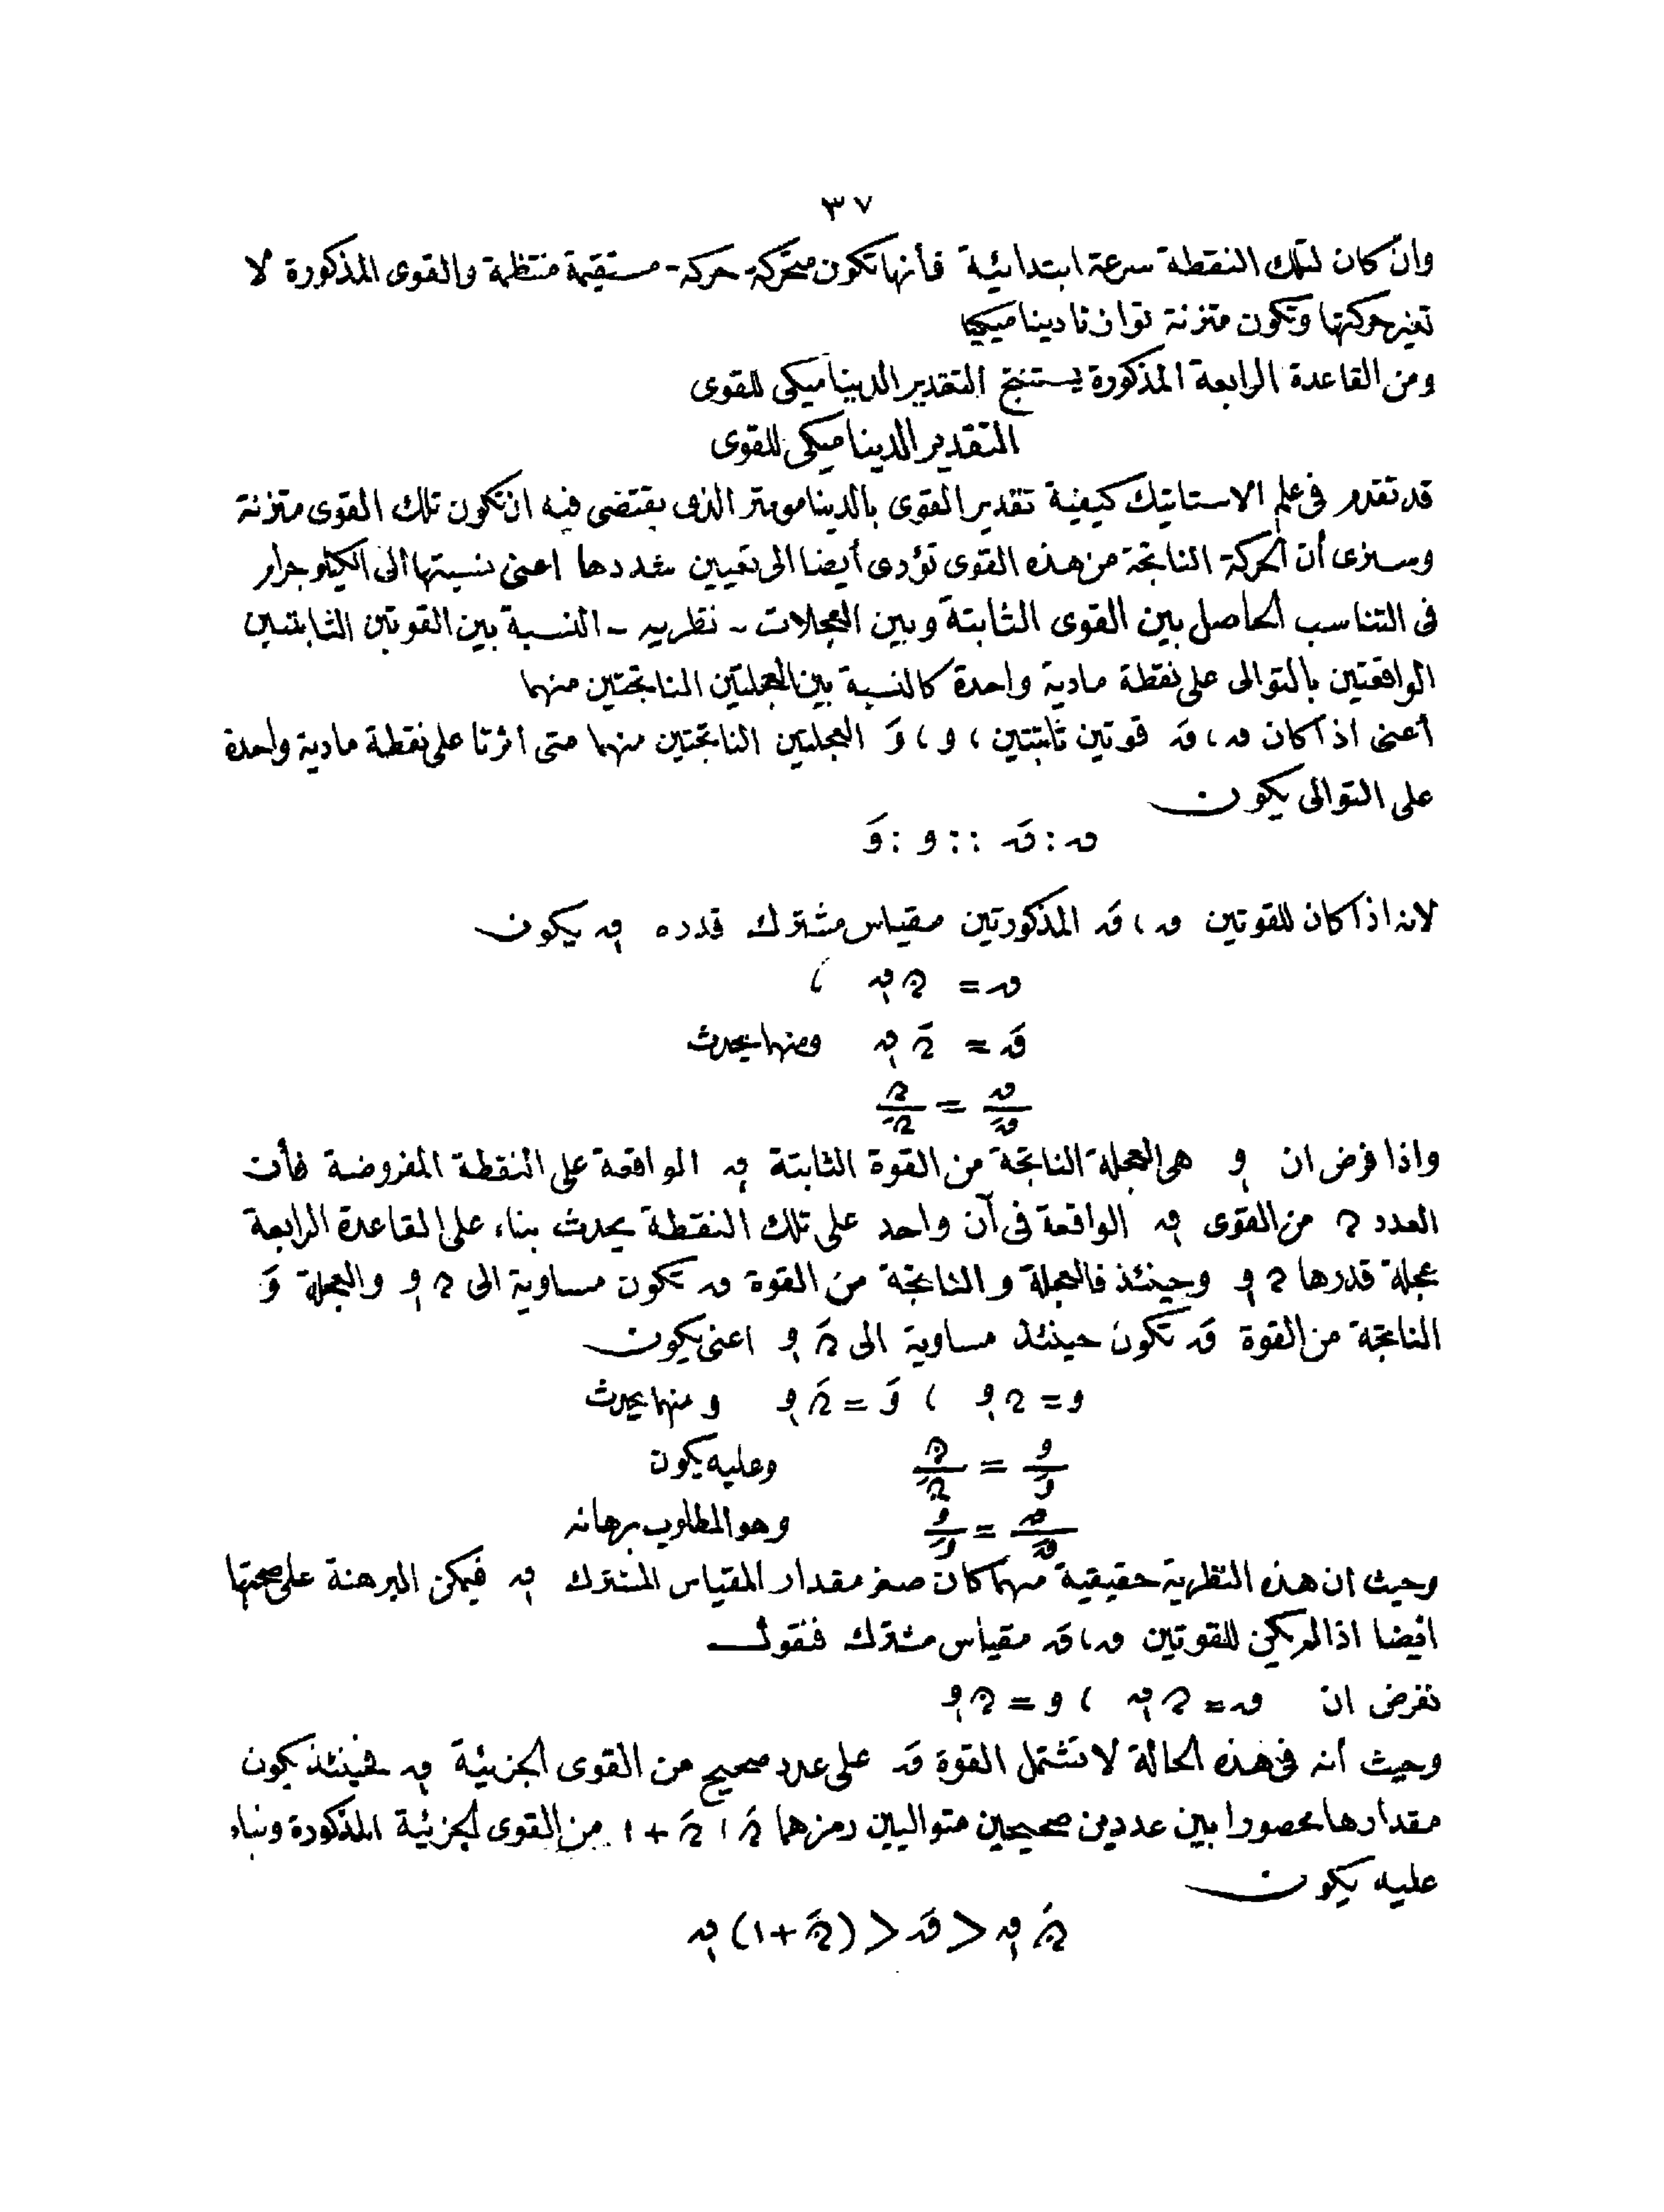 ٣٧
وان كان لتلك النقطة سرعة ابتدائية فأنها تكون متحركة حركة مستقيمة منتظمة والقوى المذكورة لا
تغير حركتها وتكون متزنة توازنا ديناميكيا
ومن القاعدة الرابعة المذكورة يستنتج التقدير الديناميكى للقوى
التقدير الديناميكى للقوى
قد تقدم فى علم الاستاتيك كيفية تقدير القوى بالدينامومتر الذى يقتضى فيه ان تكون تلك القوى متزنة
وسنرى أن الحركة الناتجة من هذه القوى تؤدى أيضا الى تعيين شددها اعنى نسبتها الى الكيلوجرام
فى التناسب الحاصل بين القوى الثابتة وبين العجلات - نظرية - النسبة بين القوتين الثابتتين
الواقعتين بالتوالى على نقطة مادية واحدة كالنسبة بين العجلتين الناتجتين منهما
أعنى اذا كان ق ، قَ قوتين ثابتتين ، و ، وَ العجلتين الناتجتين منهما متى اثرتا على نقطة مادية واحدة
على التوالى يكون
ق : قَ :: و : وَ
لانه اذا كان للقوتين ق ، قَ المذكورتين مقياس مشترك قدره ق١ يكون
ق = ن ق١ ،
قَ = نَ ق١ ومنها يحدث
ق/قَ = ن/نَ
واذا فرض ان و١ هى العجلة الناتجة من القوة الثابتة ق١ الواقعة على النقطة المفروضة فأن
العدد ن من القوى ق١ الواقعة فى آن واحد على تلك النقطة يحدث بناء على القاعدة الرابعة
عجلة قدرها ن و١ وحينئذ فالعجلة و الناتجة من القوة ق تكون مساوية الى ن و١ والعجلة وَ
الناتجة من القوة قَ تكون حينئذ مساوية الى نَ و١ اعنى يكون
و = ن و١ ، وَ = نَ و١ ومنها يحدث
و/وَ = ن/نَ وعليه يكون
ق/قَ = و/وَ وهو المطلوب برهانه
وحيث ان هذه النظرية حقيقية مهما كان صغر مقدار المقياس المشترك ق١ فيمكن البرهنة على صحتها
ايضا اذا لم يكن للقوتين ق ، قَ مقياس مشترك فنقول
نفرض ان ق = ن ق١ ، و = ن و١
وحيث أنه فى هذه الحالة لا تشتمل القوة قَ على عدد صحيح من القوى الجزئية ق١ فحينئذ يكون
مقدارها محصورا بين عددين صحيحين متواليين رمزهما نَ ، نَ + ١ من القوى الجزئية المذكورة وبناء
عليه يكون
نَ ق١ < قَ < (نَ + ١) ق١